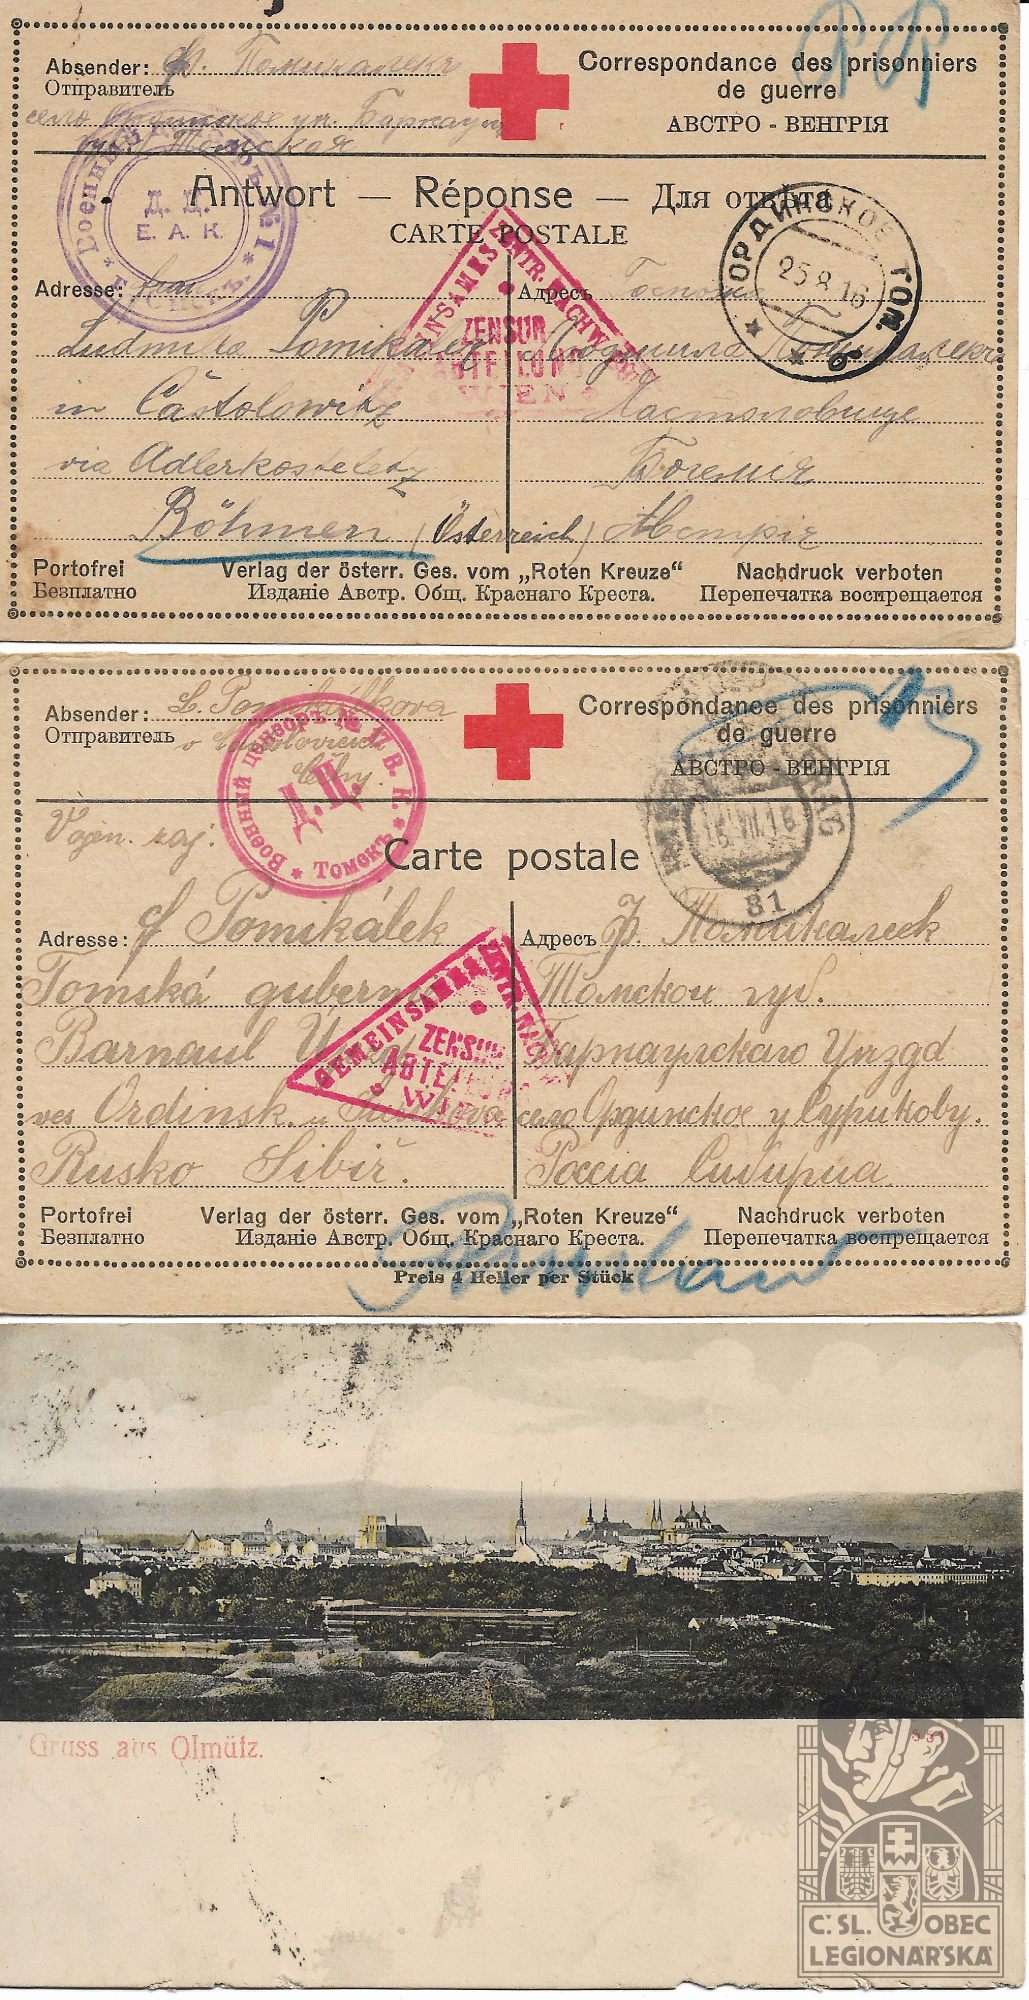 Absender: Fr. Помикалекъ
Отправитель
село Ордынское уѣ. Барнаул
губ. Томская
Correspondance des prisonniers
de guerre
АВСТРО - ВЕНГРІЯ
Военный Цензоръ № 1
Д. Ц.
Е. А. К.
Antwort — Réponse — Для отвѣта
CARTE POSTALE
ОРДИНСКОЕ ТОМ.
25 8 16
GEMEINSAMES ZENTR. NACHW.
ZENSUR
ABTEILUNG
WIEN
Adresse: Frau
Ludmila Pomikálek
in Častolowitz
via Adlerkosteletz
Böhmen (Österreich)
Адресъ Госпожа
Людмила Помикалекъ
Частоловице
Богемія
Австрія
Portofrei
Безплатно
Verlag der österr. Ges. vom „Roten Kreuze“
Изданіе Австр. Общ. Краснаго Креста.
Nachdruck verboten
Перепечатка воспрещается
Absender: L. Pomikálkova
Отправитель v Častolovicích
Čechy
Correspondance des prisonniers
de guerre
АВСТРО - ВЕНГРІЯ
Военный цензоръ № В. К.
Д. Ц.
Томскъ
Vojen. zaj:
Carte postale
81
Adresse: F Pomikálek
Tomská gubernie
Barnaul
ves Ordinsk. u Surikova
Rusko Sibiř.
Адресъ Ф. Помикалек
Томской губ.
Барнаулскаго Уѣзда
село Ординское у Сурикову.
Россіа Сибириа
GEMEINSAMES ZENTR. NACHW.
ZENSUR
ABTEILUNG
WIEN
Portofrei
Безплатно
Verlag der österr. Ges. vom „Roten Kreuze“
Изданіе Австр. Общ. Краснаго Креста.
Nachdruck verboten
Перепечатка воспрещается
Preis 4 Heller per Stück
Gruss aus Olmütz.
551
Č. SL. OBEC
LEGIONÁŘSKÁ